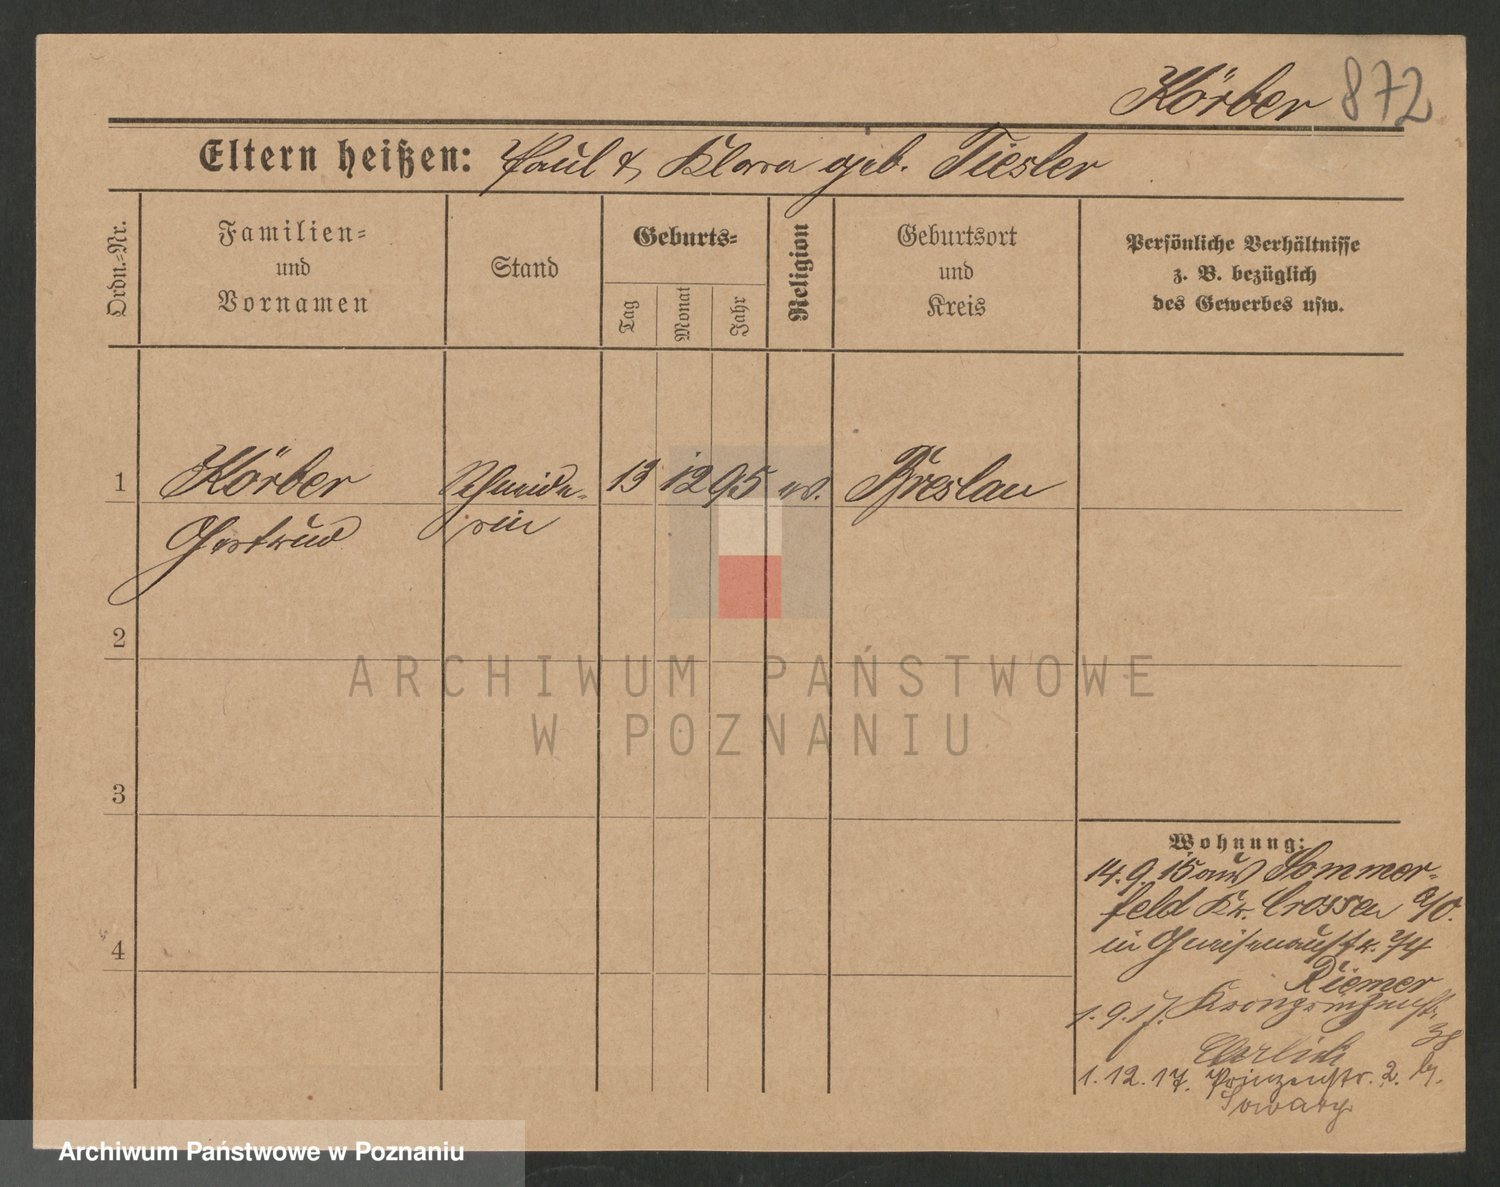 Körber 872
Eltern heißen: Paul & Klara geb. Tiesler
Ordn.-Nr.
Familien-
und
Vornamen
Stand
Geburts-
Tag
Monat
Jahr
Religion
Geburtsort
und
Kreis
Persönliche Verhältnisse
z. B. bezüglich
des Gewerbes usw.
1 Körber Schneide- 13 12 95 ev. Breslau
Gertrud rin
2
3
4
Wohnung:
14.9.15 aus Sommer-
feld Kr. Crossen a/O.
in Gneisenaustr.
Riemer
1.9.17. Kronprinzenstr.
38
1.12.17. Prinzenstr. 2.
ARCHIWUM PAŃSTWOWE
W POZNANIU
Archiwum Państwowe w Poznaniu